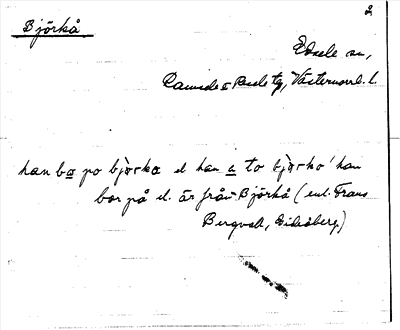 2
Björkå
Edsele sn,
Ramsele & Resele tg, Västernorrl. l.
han bo po bjørko el han a to bjørko 'han
bor på el. är från Björkå (enl. Frans
Bergvall, Eideåberg)